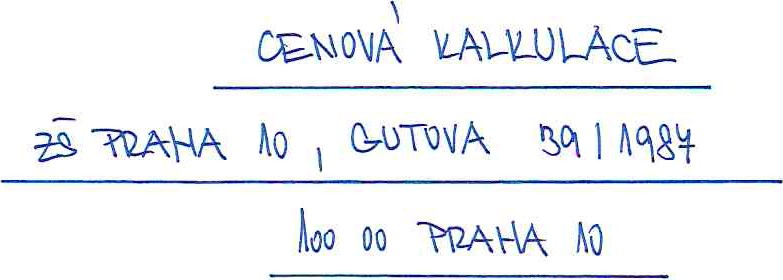 CENOVÁ KALKULACE
ZŠ PRAHA 10, GUTOVA 39/1987
100 00 PRAHA 10